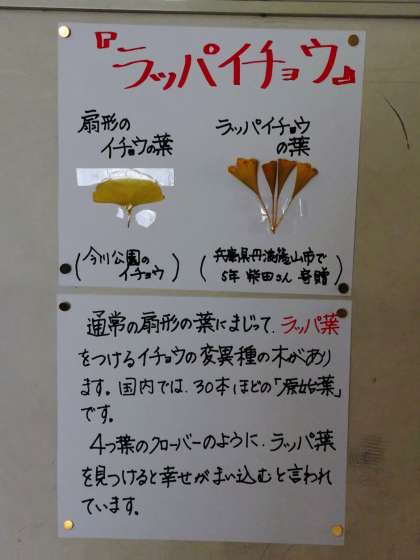 『ラッパイチョウ』
扇形の
イチョウの葉
ラッパイチョウ
の葉
(今川公園の
イチョウ)
(兵庫県丹波篠山市で
5年 柴田さん 寄贈)
通常の扇形の葉にまじって、ラッパ葉
をつけるイチョウの変異種の木があり
ます。国内では、30本ほどの「原始葉」
です。
4つ葉のクローバーのように、ラッパ葉
を見つけると幸せがまい込むと言われ
ています。